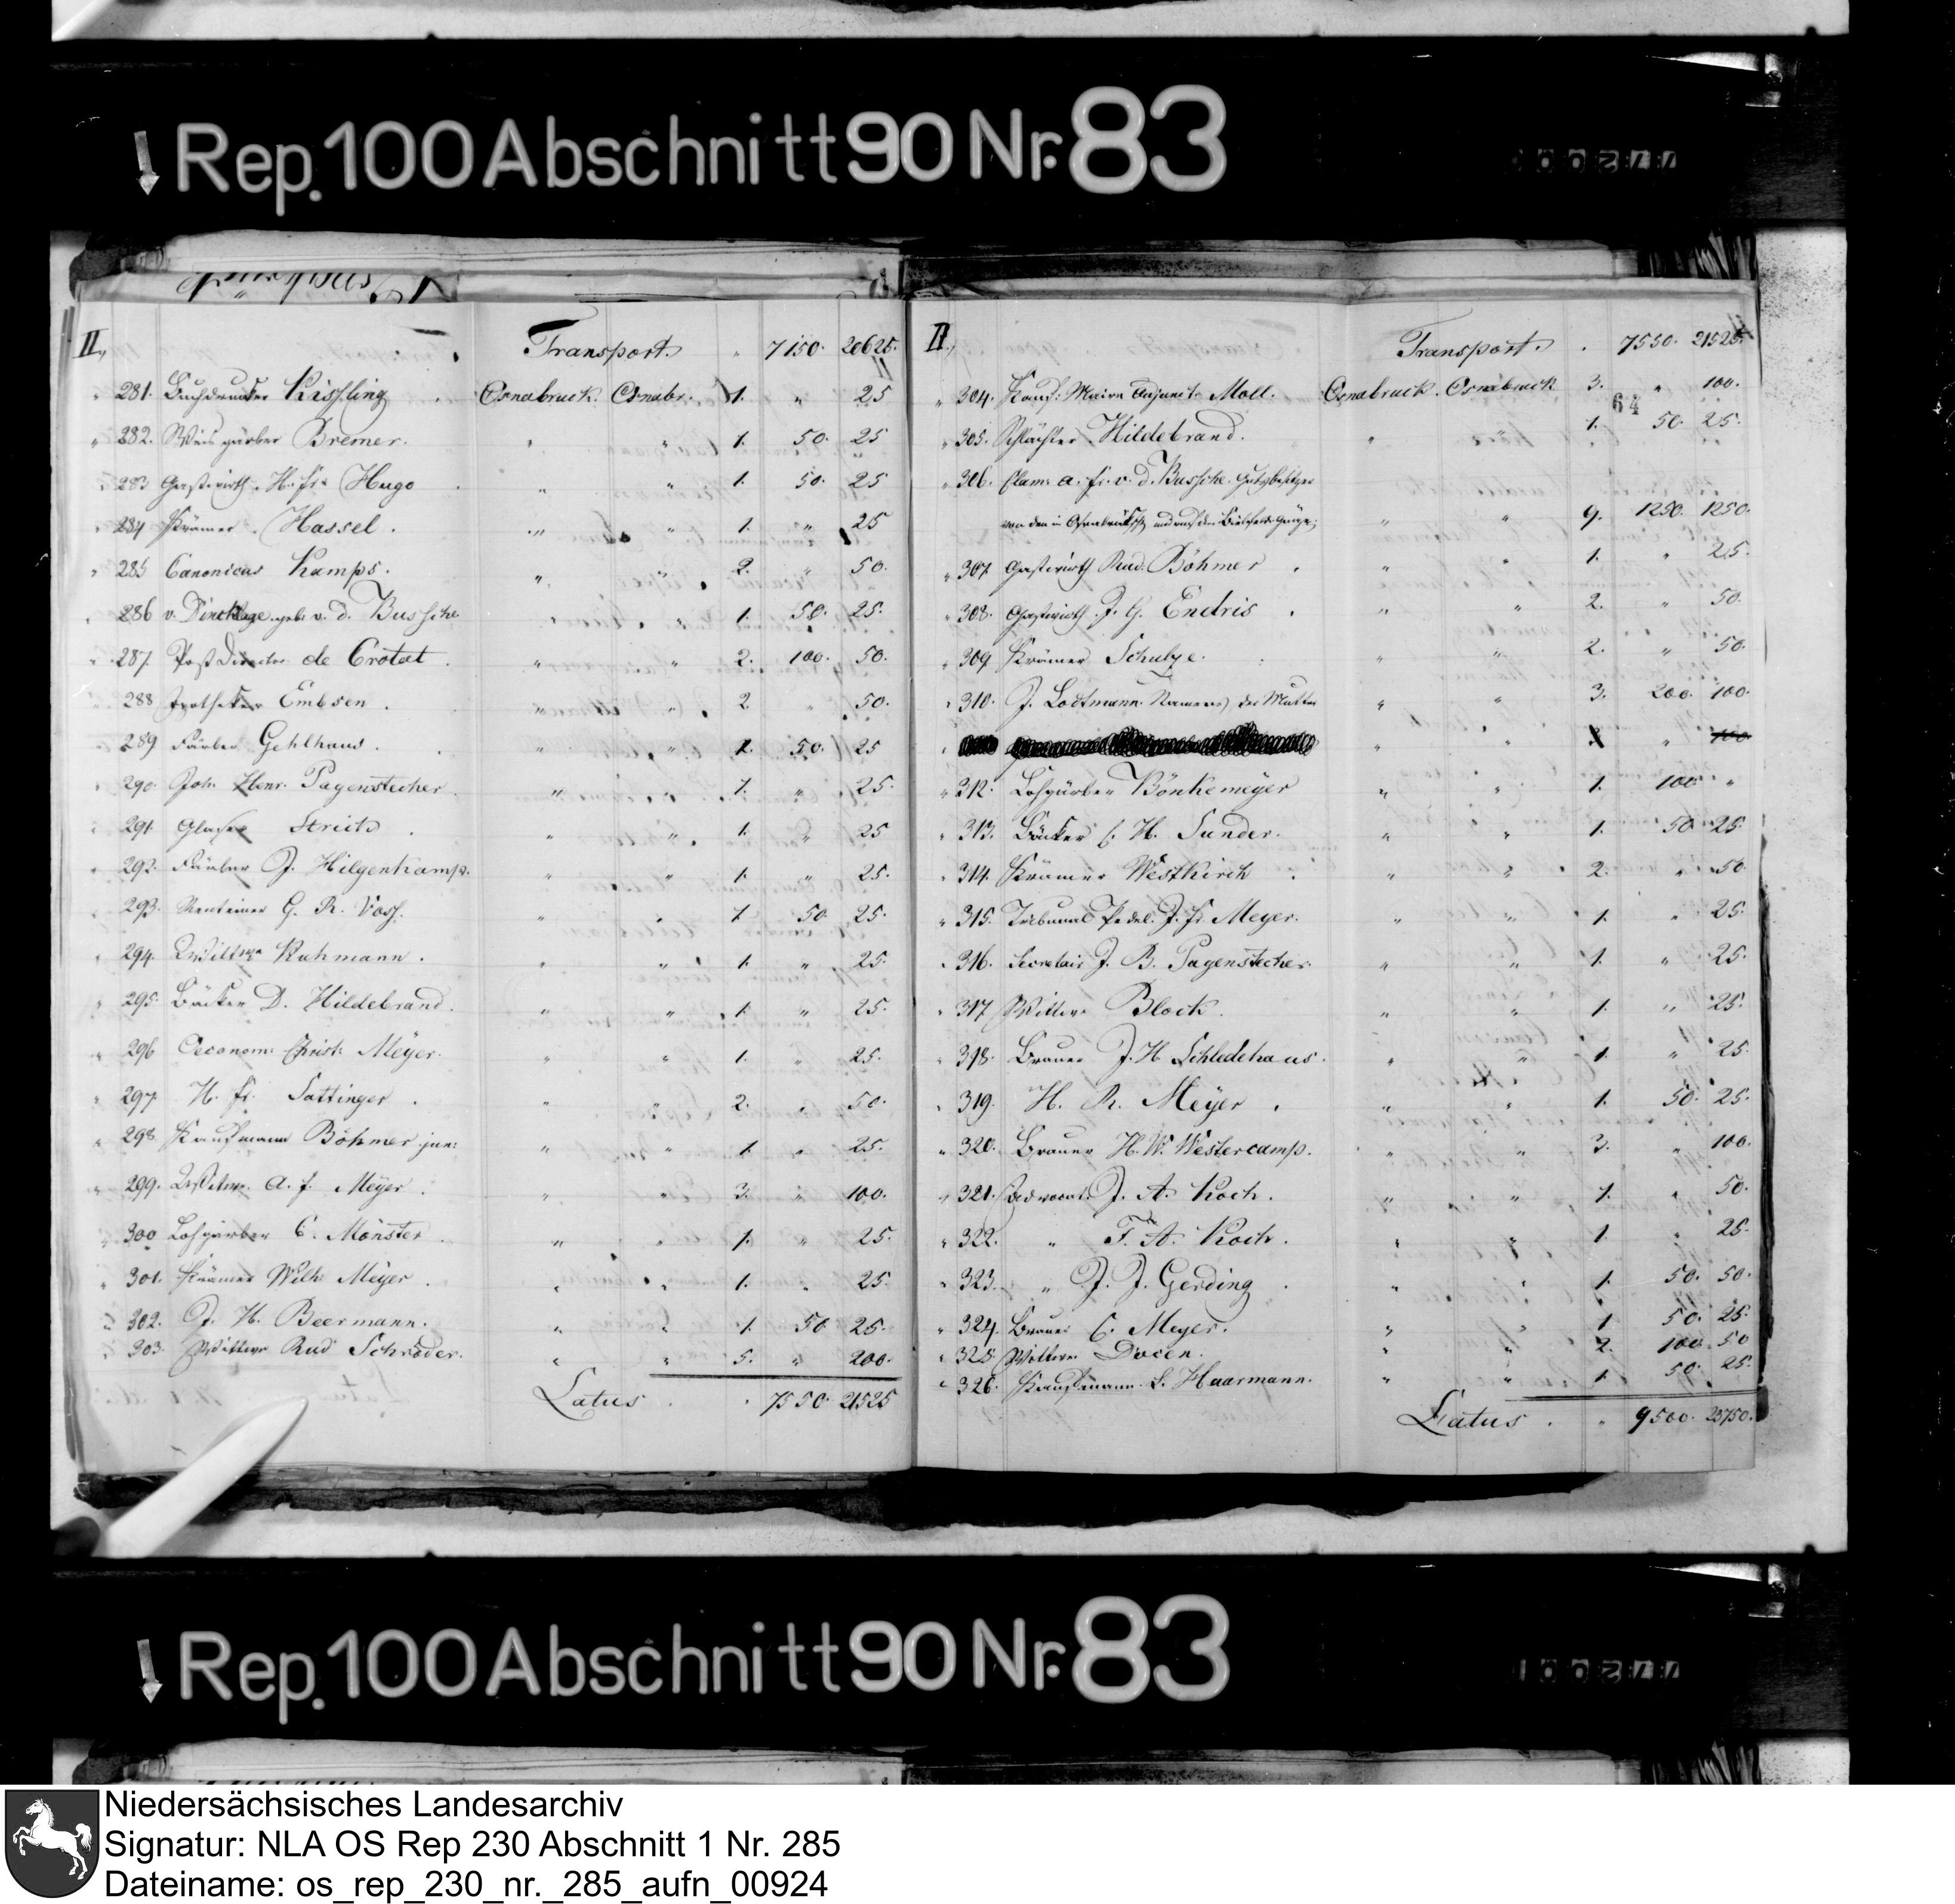 Rep. 100 Abschnitt 90 Nr. 83
II. Transport. " 7150. 20625.
" 281. Buchdrucker Kissling Osnabruck. Osnabr. 1. " 25
" 282. Weis gärber Bremer. " " 1. 50. 25
" 283 Gastwirth H. Fr. Hugo " " 1. 50. 25
" 284 Krämer Hassel. " " 1. " 25
" 285 Canonicus Kamps. " " 2. " 50.
" 286 v. Dincklage geb. v. d. Bussche " " 1. 50. 25.
" 287. Post Director de Crotat " " 2. 100. 50.
288 Apotheker Embsen. " " 2. " 50.
289 Färber Gehlhaus. " " 1. 50. 25
" 290. Joh. Henr. Pagenstecher " " 1. " 25.
291. Glaser Strick " " 1. " 25
" 292. Färber J. Hilgenkamp. " " 1. " 25.
" 293. Renteimer G. R. Voss. " " 1 50. 25.
" 294. Wittwe Ruhmann. " " 1. " 25.
" 295. Bäcker D. Hildebrand. " " 1. " 25.
" 296 Oeconom: Christ: Meyer. " " 1. " 25.
" 297. H. Fr. Sattinger " " 2. " 50.
" 298. Kaufmann Böhmer jun: " " 1. " 25.
" 299. Wittwe. A. F. Meyer. " " 3. " 100.
" 300 Lohgärber C. Mönster " " 1. " 25.
" 301. Krämer Wilh. Meyer " " 1. " 25.
" 302. J. H. Beermann. " " 1. 50 25.
" 303. Wittwe Rud Schröder. " " 5. " 200.
Latus. 7550. 21525
II. Transport. 7550. 21525.
" 304. Kauf: Maire Adjunct. Moll. Osnabruck. Osnabruck 3. " 100.
64
" 305. Schlächter Hildebrand. " " 1. 50. 25.
" 306. Clam. A. Fr. v. d. Bussche. Gutsbesitzer
von den in Osnabrücksch. und auf den Bielefeld. " " 9. 1250. 1250.
" 307. Gastwirth Rud. Böhmer " " 1. " 25.
" 308. Gastwirth J. G. Endris " " 2. " 50.
" 309 Krämer Schulze. " " 2. " 50.
" 310. J. Lodtmann Namens der Mutter " " 3. 200. 100.
" 312. Lohgärber Bönkemeyer " " 1. 100. "
" 313. Bäcker C. H. Sunder. " " 1. 50. 25.
" 314. Krämer Westkirch " " 2. " 50.
" 315. Tribunal Pedel. J. Fr Meyer. " " 1. " 25.
" 316. Secretair J. B. Pagenstecher. " " 1. " 25.
" 317 Wittwe Block. " " 1. " 25.
" 318. Brauer J. H Schledehaus. " " 1. " 25.
" 319. H. R. Meyer. " " 1. 50. 25.
" 320. Brauer H. W. Westercamp. " " 3. " 100.
" 321. Advocat. J. A. Koch. " " 1. " 50.
" 322. " F. A. Koch. " " 1. " 25.
" 323. " J. J. Gerding " " 1. 50. 50.
" 324. Brauer C. Meyer. " " 1 50. 25.
" 325. Wittwe Docen. " " 2. 100. 50
" 326. Kaufmann L. Haarmann. " " 1. 50. 25.
Latus. " 9500. 23750.
Rep. 100 Abschnitt 90 Nr. 83
Niedersächsisches Landesarchiv
Signatur: NLA OS Rep 230 Abschnitt 1 Nr. 285
Dateiname: os_rep_230_nr._285_aufn_00924